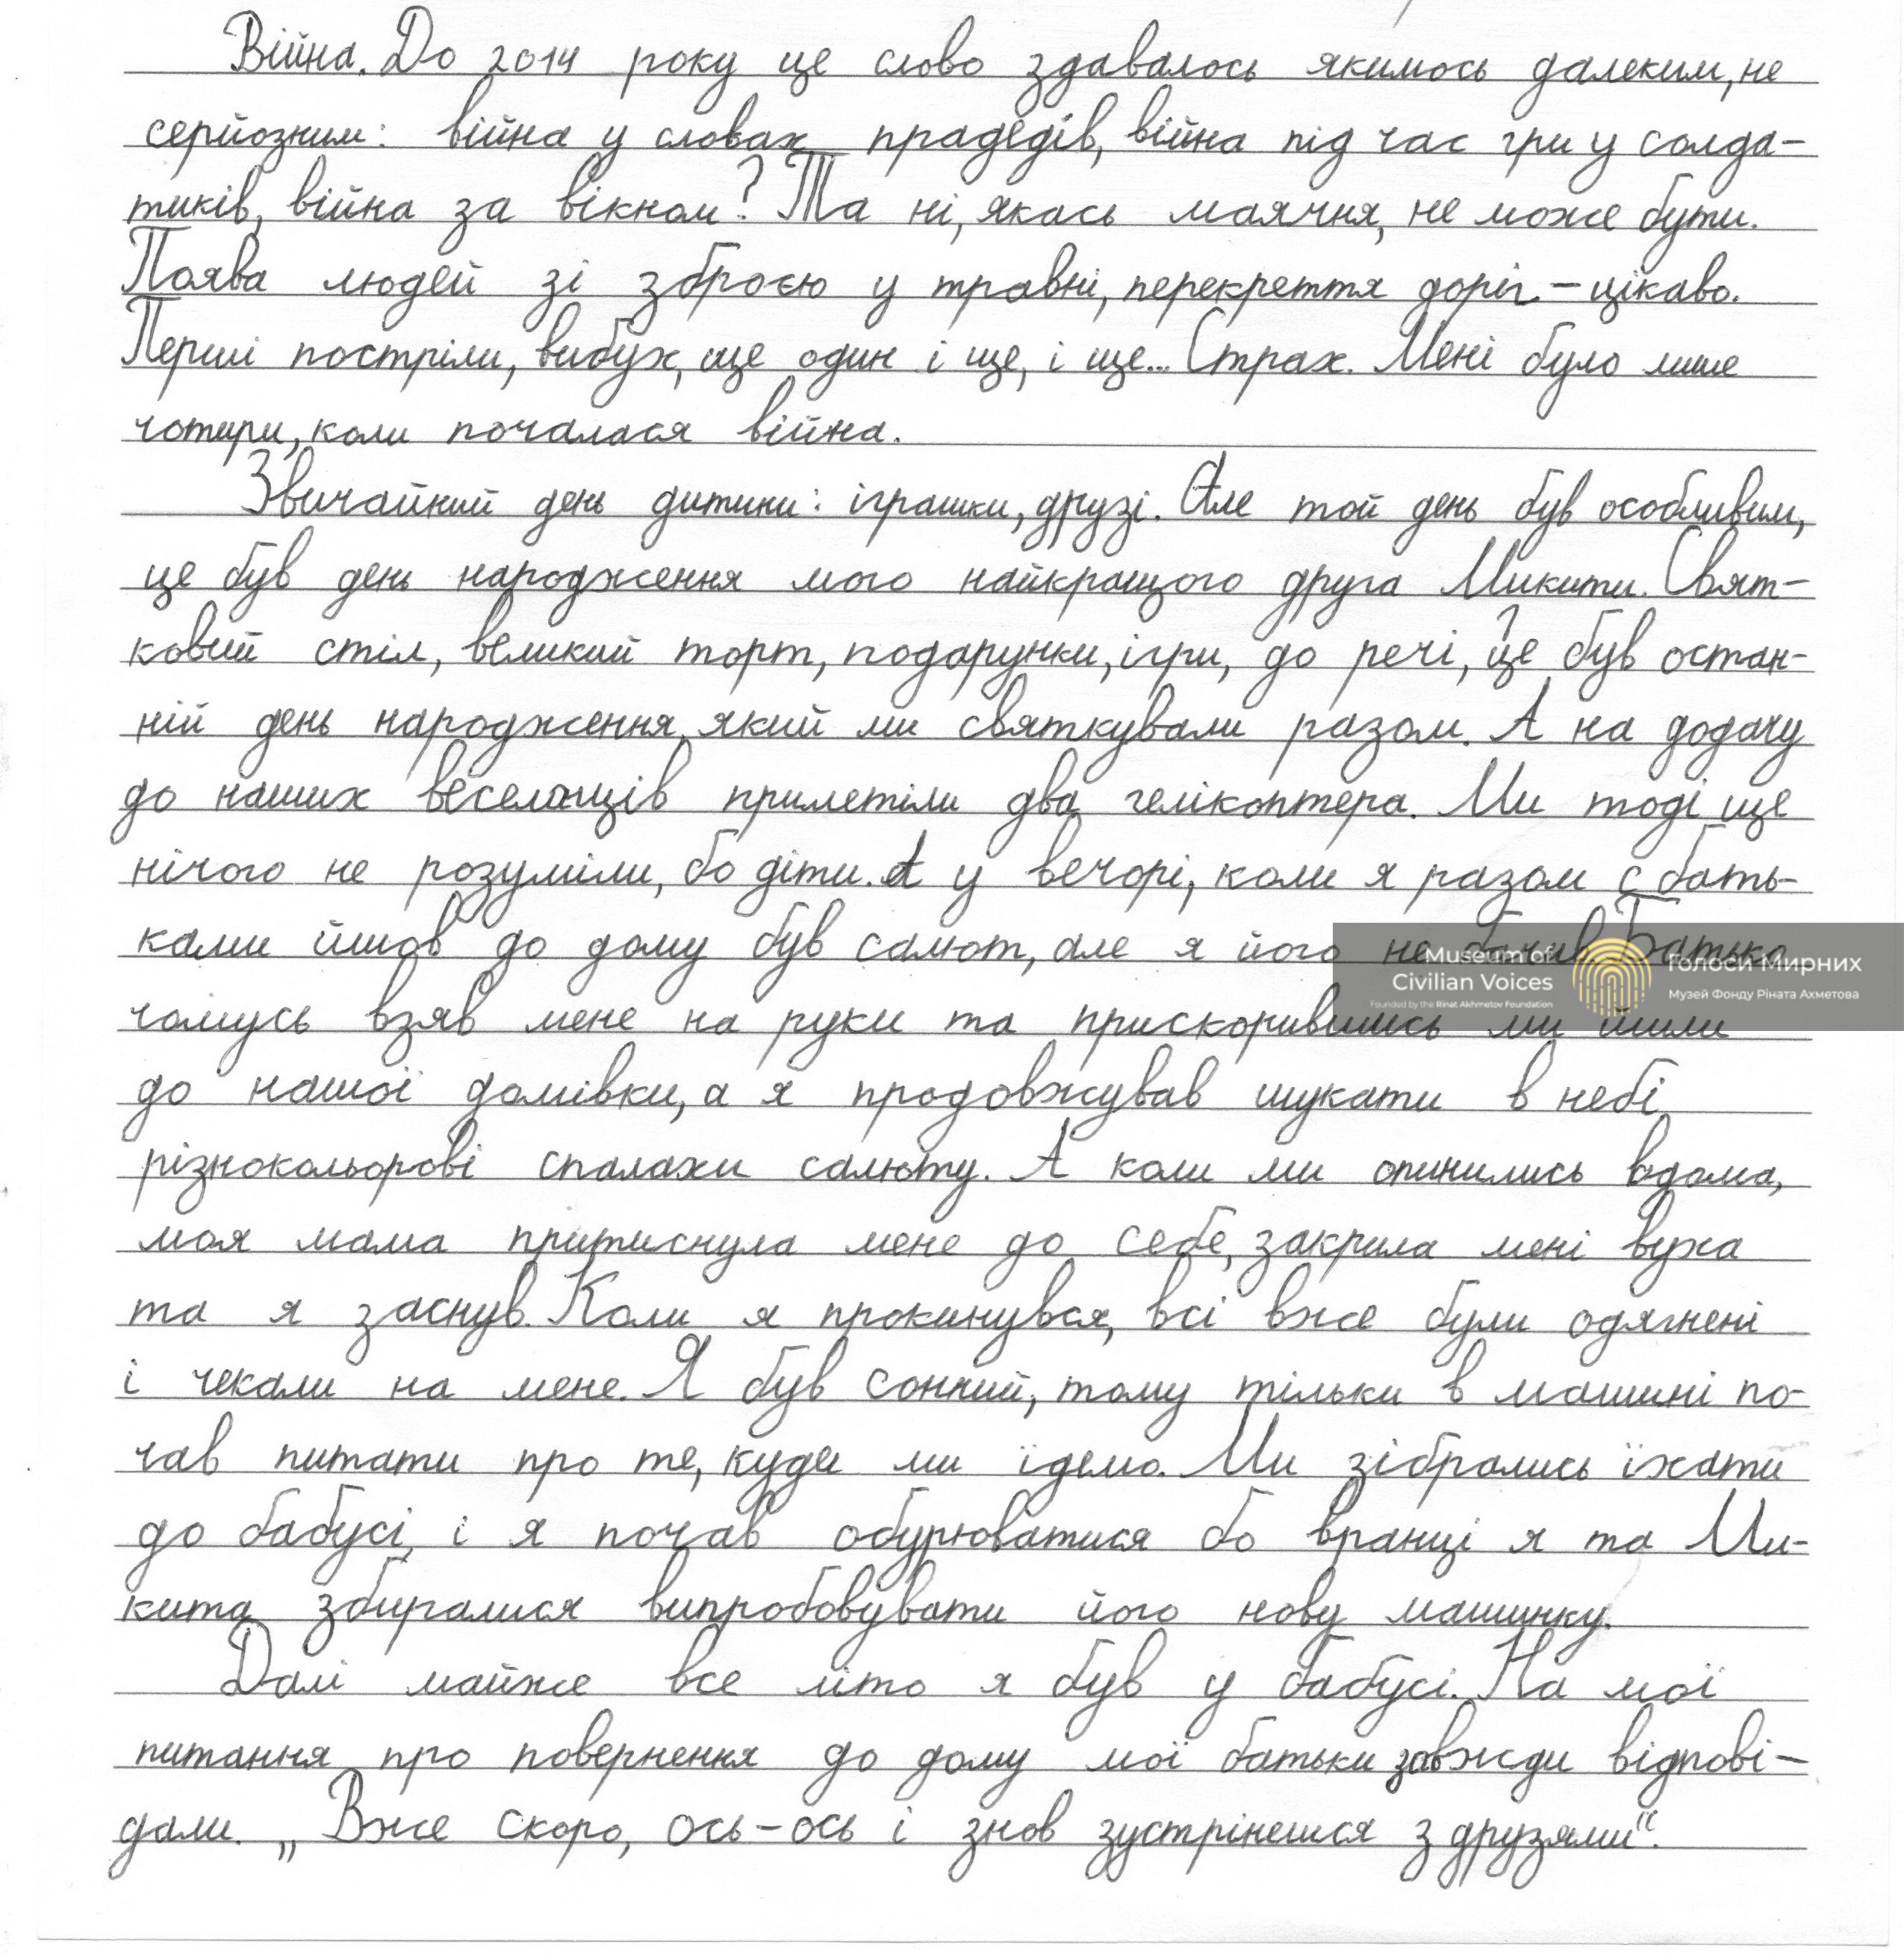 Війна. До 2014 року це слово здавалось якимось далеким, не
серйозним: війна у словах прадедів, війна під час гри у солда-
тиків, війна за вікном? Та ні, якась маячня, не може бути.
Поява людей зі зброєю у травні, перекреття доріг – цікаво.
Перші постріли, вибух, ще один і ще, і ще... Страх. Мені було лише
чотири, коли почалася війна.
Звичайний день дитини: іграшки, друзі. Але той день був особливим,
це був день народження мого найкращого друга Микити. Свят-
ковий стіл, великий торт, подарунки, ігри, до речі, це був остан-
ній день народження, який ми святкували разом. А на додачу
до наших веселощів прилетіли два гелікоптера. Ми тоді ще
нічого не розуміли, бо діти. А у вечорі, коли я разом с бать-
ками йшов до дому був салют, але я його не бачив. Батько
чомусь взяв мене на руки та прискорившись ми йшли
до нашої домівки, а я продовжував шукати в небі
різнокольорові спалахи салюту. А коли ми опинились вдома,
моя мама притиснула мене до себе, закрила мені вуха
та я заснув. Коли я прокинувся, всі вже були одягнені
і чекали на мене. Я був сонний, тому тільки в машині по-
чав питати про те, куди ми їдемо. Ми зібрались їхати
до бабусі, і я почав обурюватися бо вранці я та Ми-
кита збиралися випробовувати його нову машинку.
Далі майже все літо я був у бабусі. На мої
питання про повернення до дому мої батьки завжди відпові-
дали. „Вже скоро, ось-ось і знов зустрінешся з друзями“.
Museum of
Civilian Voices
Founded by the Rinat Akhmetov Foundation
Голоси Мирних
Музей Фонду Ріната Ахметова